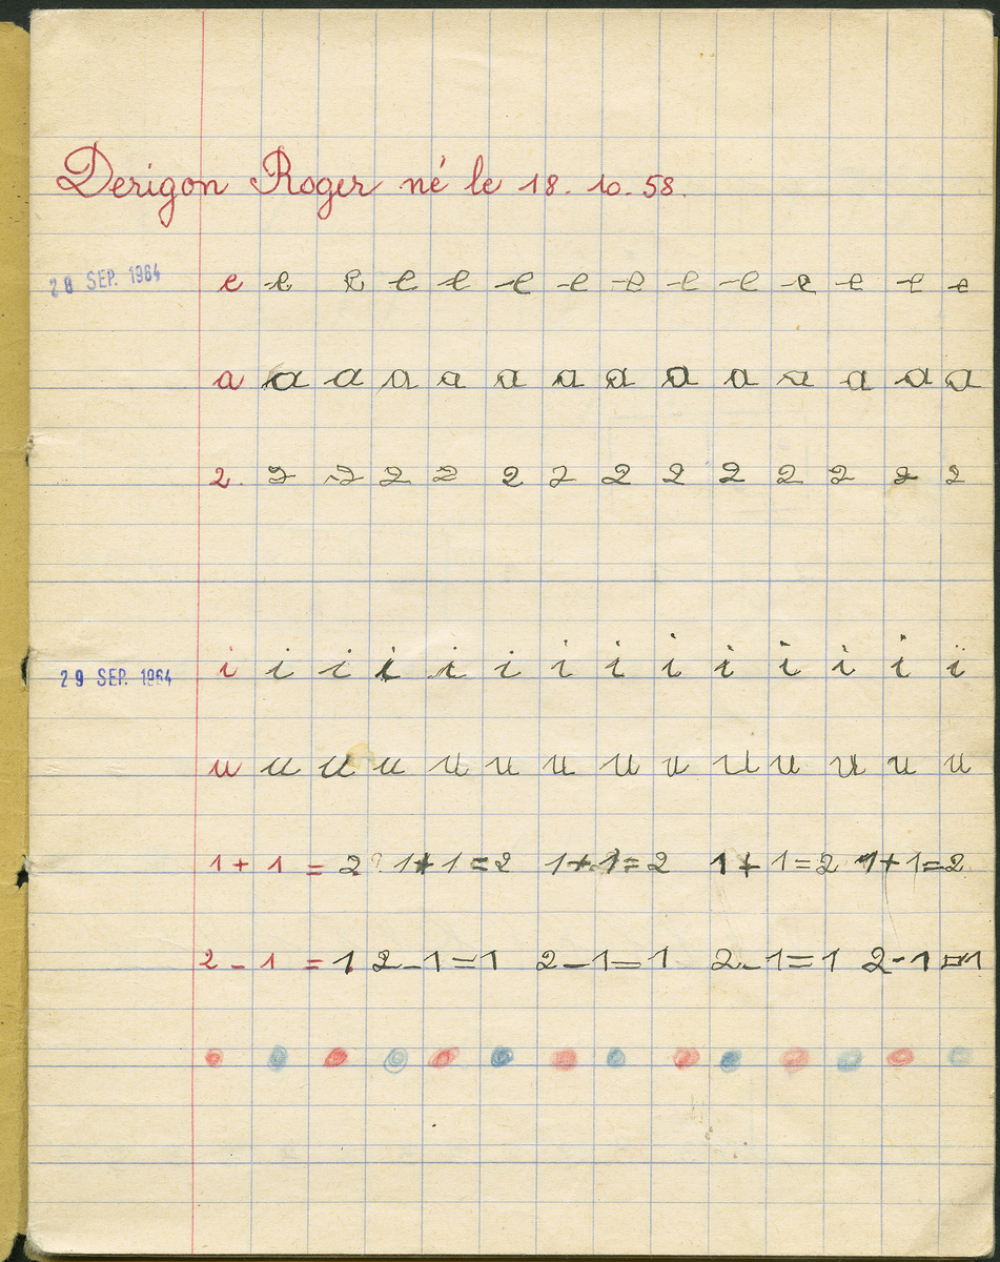 Derigon Roger né le 18.10.58.
28 SEP. 1964 e e e e e e e e e e e e e e
a a a a a a a a a a a a a a
2. 2 2 2 2 2 2 2 2 2 2 2 2 2
29 SEP. 1964 i i i i i i i i i i i i i i
u u u u u u u u u u u u u u
1 + 1 = 2 1+1=2 1+1=2 1+1=2 1+1=2
2 - 1 = 1 2-1=1 2-1=1 2-1=1 2-1=1